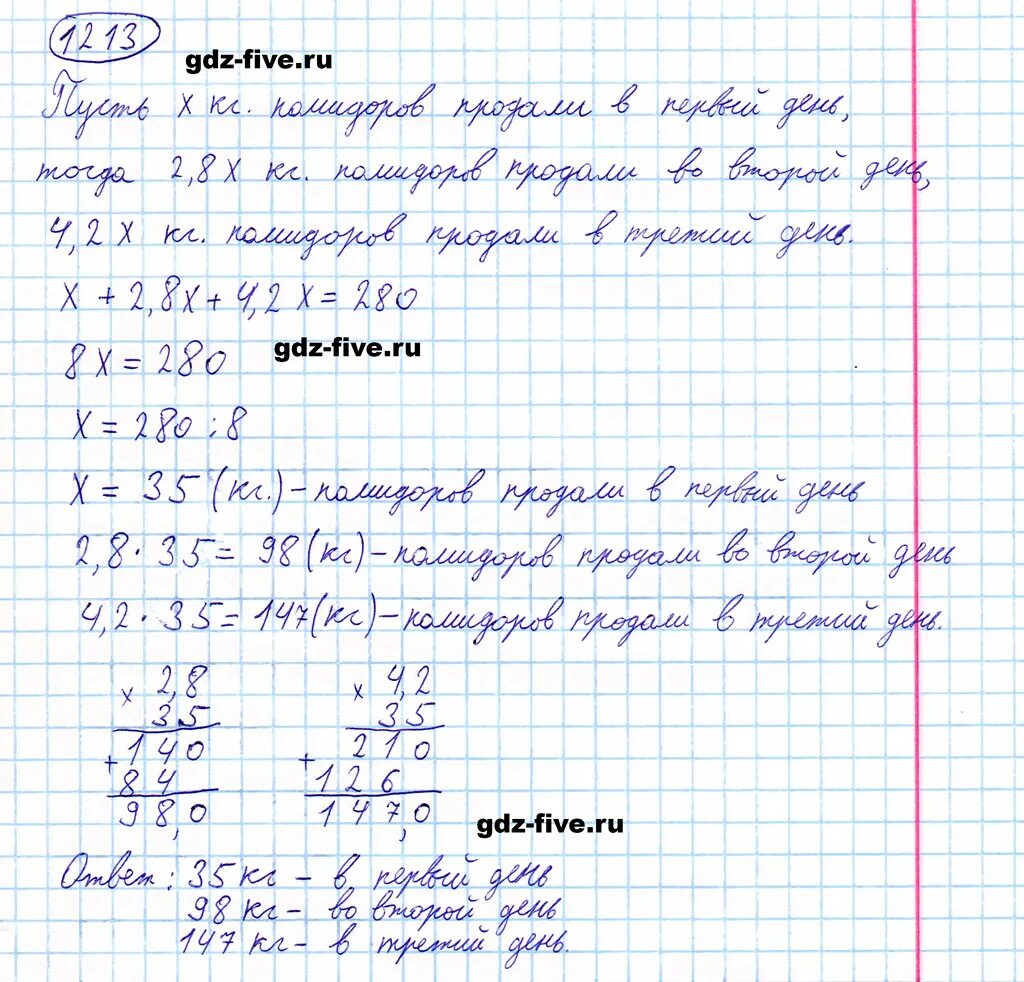 1213
gdz-five.ru
Пусть х кг. помидоров продали в первый день,
тогда 2,8х кг. помидоров продали во второй день,
4,2х кг. помидоров продали в третий день.
х + 2,8х + 4,2х = 280
8х = 280
gdz-five.ru
х = 280 : 8
х = 35 (кг.) – помидоров продали в первый день
2,8 · 35 = 98 (кг) – помидоров продали во второй день
4,2 · 35 = 147 (кг) – помидоров продали в третий день.
× 2,8 × 4,2
35 35
+ 140 + 210
84 126
98,0 147,0
gdz-five.ru
Ответ: 35 кг – в первый день
98 кг – во второй день
147 кг – в третий день.